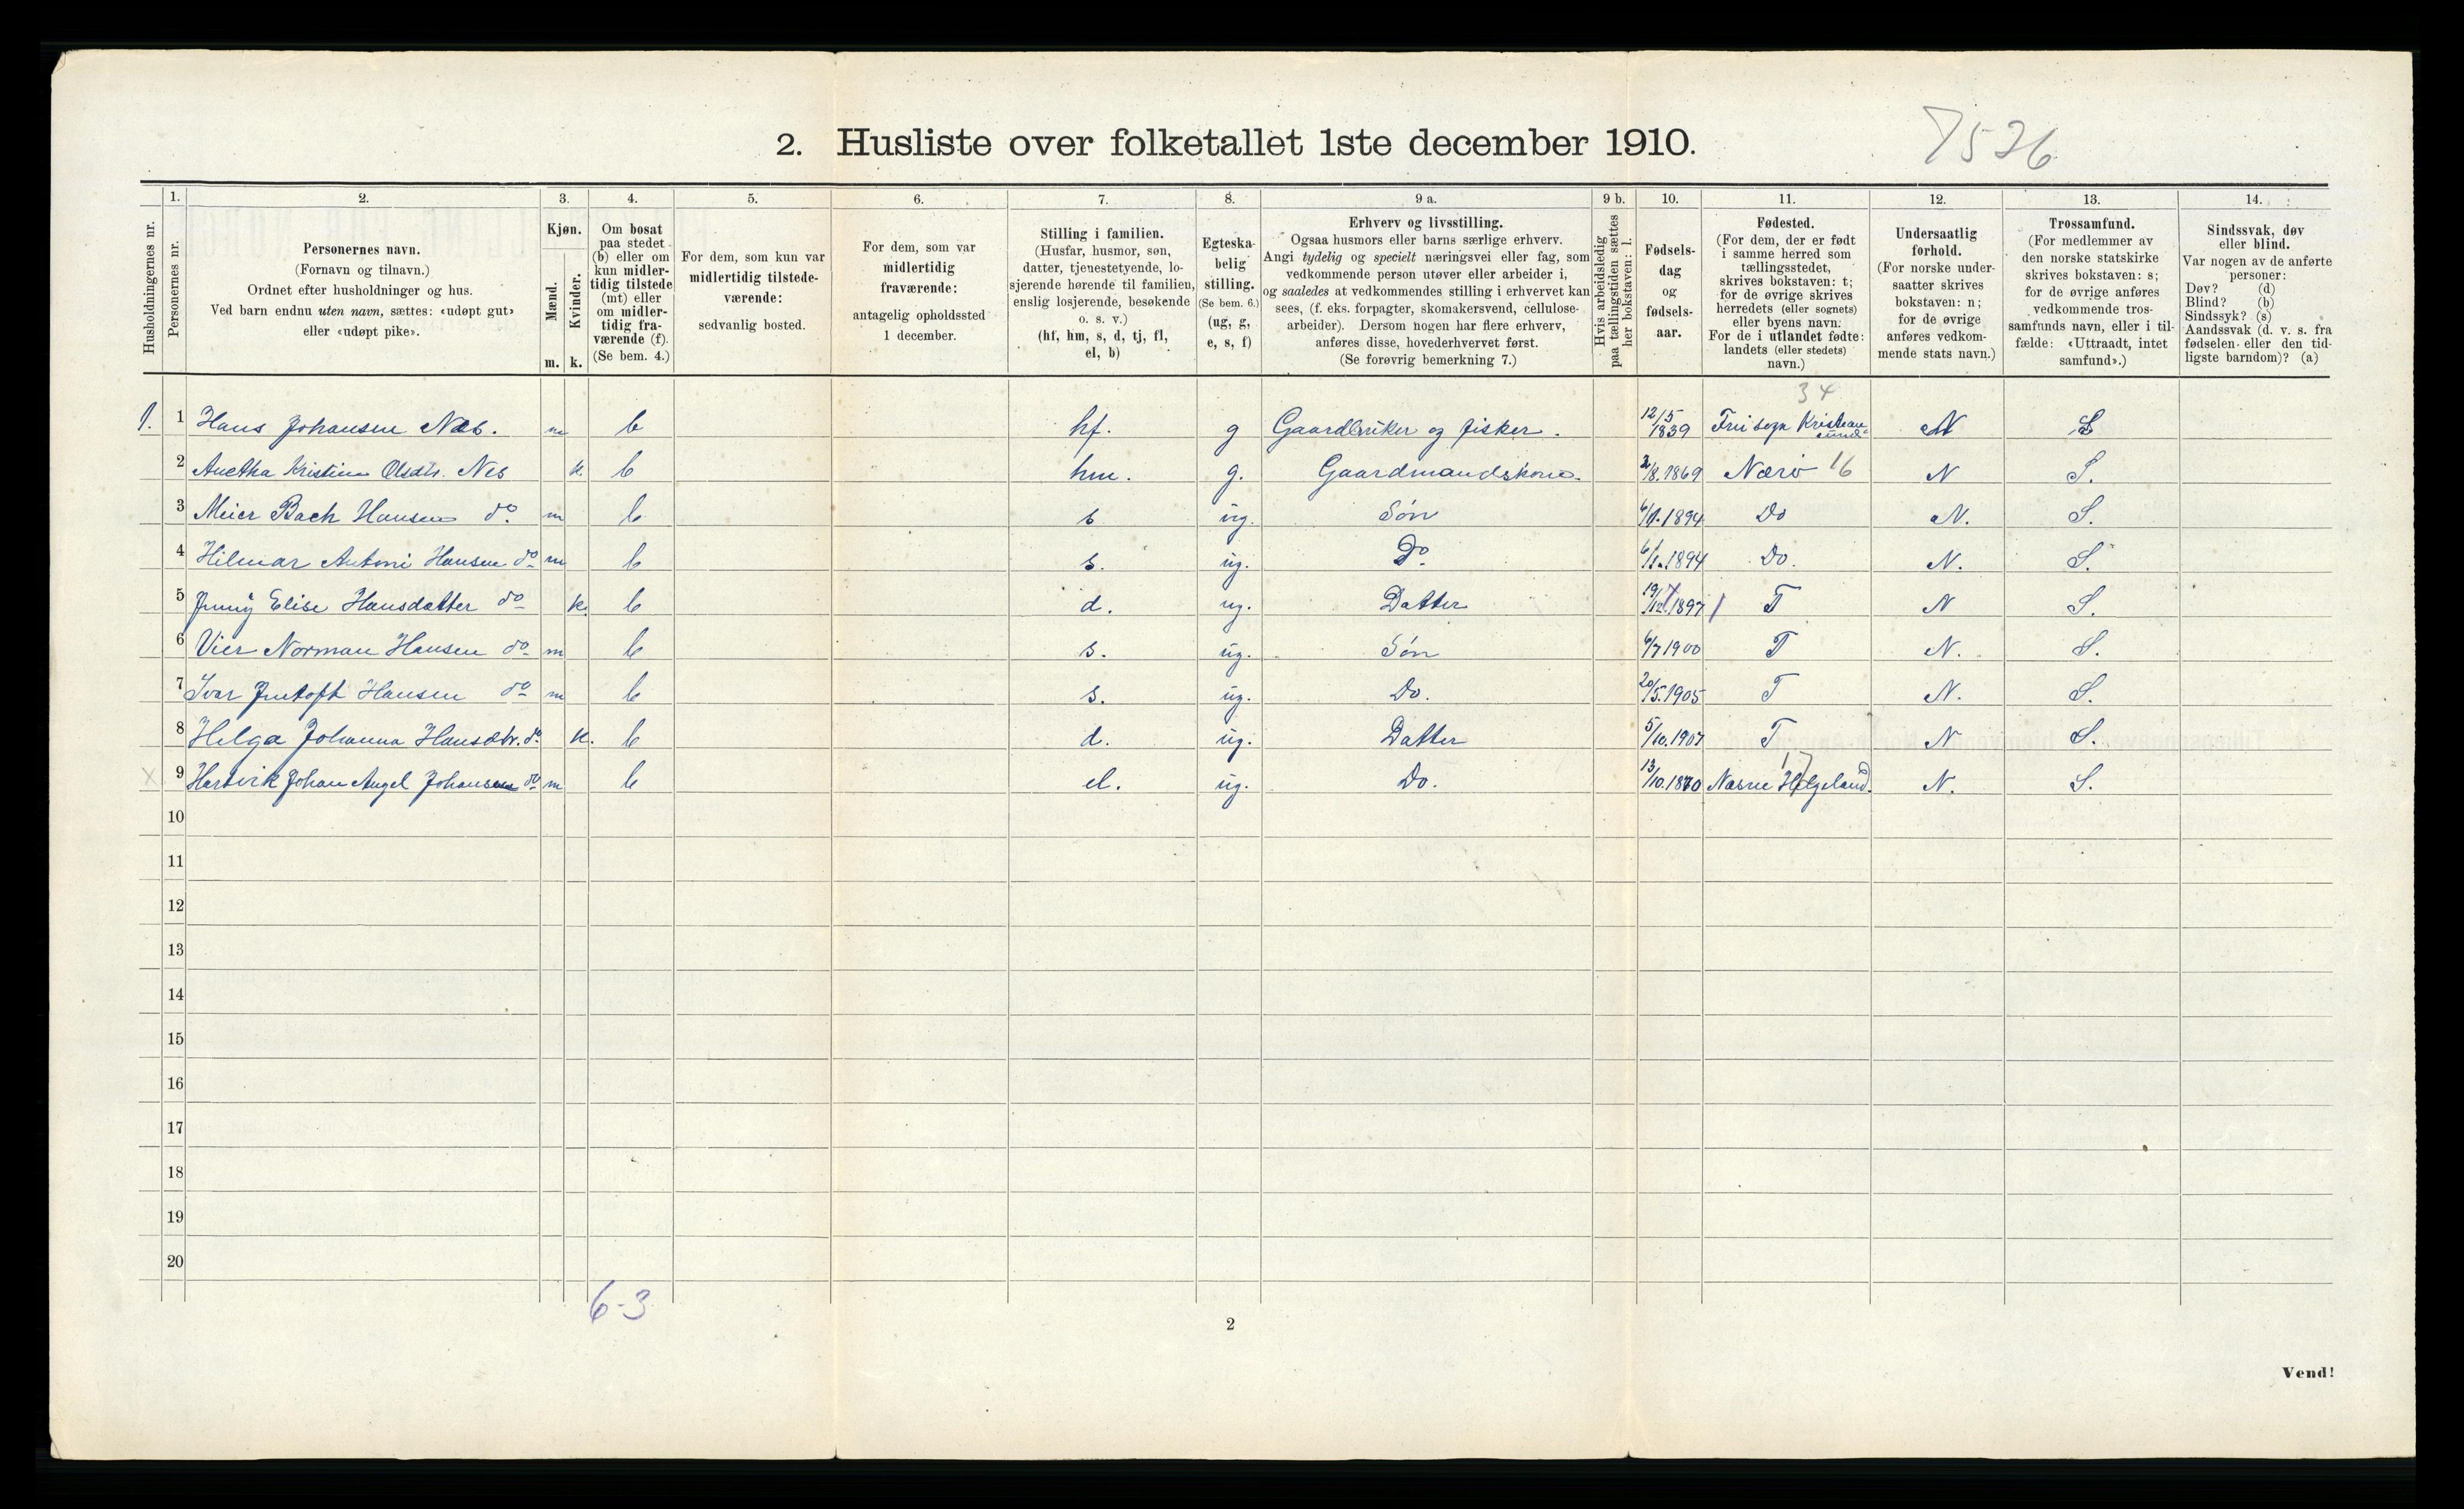 2. Husliste over folketallet 1ste december 1910.
7526
Husholdningernes nr.
1.
Personernes nr.
2.
Personernes navn.
(Fornavn og tilnavn.)
Ordnet efter husholdninger og hus.
Ved barn endnu uten navn, sættes: «udøpt gut»
eller «udøpt pike».
3.
Kjøn.
Mænd.
Kvinder.
m. k.
4.
Om bosat
paa stedet
(b) eller om
kun midler-
tidig tilstede
(mt) eller
om midler-
tidig fra-
værende (f).
(Se bem. 4.)
5.
For dem, som kun var
midlertidig tilstede-
værende:
sedvanlig bosted.
6.
For dem, som var
midlertidig
fraværende:
antagelig opholdssted
1 december.
7.
Stilling i familien.
(Husfar, husmor, søn,
datter, tjenestetyende, lo-
sjerende hørende til familien,
enslig losjerende, besøkende
o. s. v.)
(hf, hm, s, d, tj, fl,
el, b)
8.
Egteska-
belig
stilling.
(Se bem. 6.)
(ug, g,
e, s, f)
9 a.
Erhverv og livsstilling.
Ogsaa husmors eller barns særlige erhverv.
Angi tydelig og specielt næringsvei eller fag, som
vedkommende person utøver eller arbeider i,
og saaledes at vedkommendes stilling i erhvervet kan
sees, (f. eks. forpagter, skomakersvend, cellulose-
arbeider). Dersom nogen har flere erhverv,
anføres disse, hovederhvervet først.
(Se forøvrig bemerkning 7.)
9 b.
Hvis arbeidsledig
paa tællingstiden sættes
her bokstaven: l.
10.
Fødsels-
dag
og
fødsels-
aar.
11.
Fødested.
(For dem, der er født
i samme herred som
tællingsstedet,
skrives bokstaven: t;
for de øvrige skrives
herredets (eller sognets)
eller byens navn.
For de i utlandet fødte:
landets (eller stedets)
navn.)
12.
Undersaatlig
forhold.
(For norske under-
saatter skrives
bokstaven: n;
for de øvrige
anføres vedkom-
mende stats navn.)
13.
Trossamfund.
(For medlemmer av
den norske statskirke
skrives bokstaven: s;
for de øvrige anføres
vedkommende tros-
samfunds navn, eller i til-
fælde: «Uttraadt, intet
samfund».)
14.
Sindssvak, døv
eller blind.
Var nogen av de anførte
personer:
Døv? (d)
Blind? (b)
Sindssyk? (s)
Aandssvak (d. v. s. fra
fødselen eller den tid-
ligste barndom)? (a)
34
1. 1 Hans Johansen Næs. m b hf. g Gaardbruker og fisker. 12/5 1839 Kristian-sund N S
2 Anetha Kristine Olsdtr. Nes k. b hm. g. Gaardmandskone. 2/8.1869 Nærø 16 N S.
3 Meier Bach Hansen do. m b s ug. Søn 6/1.1894 Do N. S.
4 Hilmar Antoni Hansen do m b s. ug. Do. 6/1.1894 Do. N. S.
5 Jenny Elise Hansdatter do k. b d. ug. Datter 19/12.1897 T N S.
6 Vier Norman Hansen do. m b s. ug. Søn 6/7 1900 T N. S.
7 Ivar Hansen do m b s. ug. Do. 20/5.1905 T N. S.
8 Helga Johanna Hansdtr. do k. b d. ug. Datter 5/10.1907 T N S.
17
X 9 Hartvik Johan Angel Johansen do m b el. ug. Do. 13/10.1870 Næsne Helgeland. N. S.
10
11
12
13
14
15
16
17
18
19
20
6-3
2
Vend!